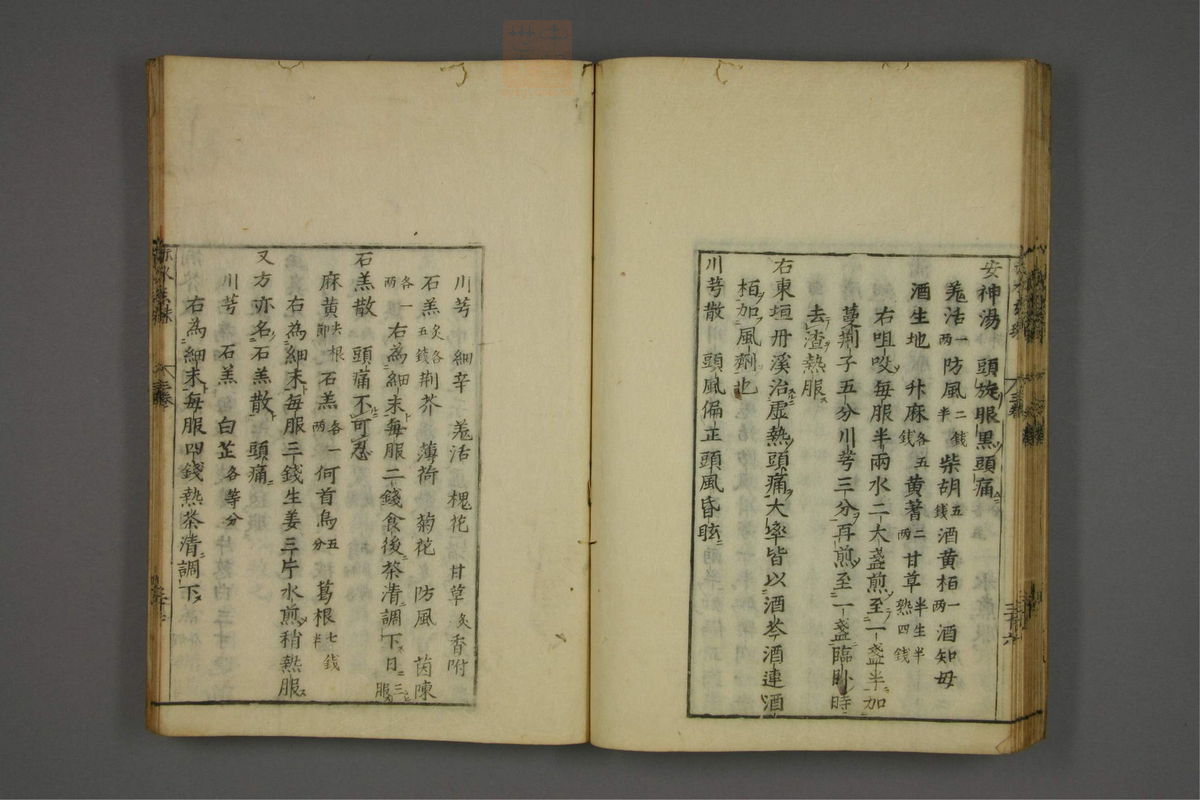 安神湯 頭旋眼黒頭痛
羗活一両防風二錢半柴胡五錢酒黄栢一両酒知母
酒生地 升麻各五錢黄蓍二両甘草半生半熟四錢
右咀咬毎服半兩水二大盞煎至一盞半加
蔓荆子五分川芎三分再煎至一盞臨卧時
去渣熱服
右東垣丹溪治虚熱頭痛大率皆以酒芩酒連酒
栢加風劑也
川芎散 頭風偏正頭風昏眩
川芎 細辛 羗活 槐花 甘草炙 香附
石羔炙各五錢荆芥 薄荷 菊花 防風 茵陳
各一両 右為細末毎服二錢食後茶清調下日三服
石羔散 頭痛不可忍
麻黄去根節石羔各一両何首烏五分 葛根七錢半
右為細末毎服三錢生姜三片水煎稍熱服
又方亦名石羔散 頭痛
川芎 石羔 白芷各等分
右為細末毎服四錢熱茶清調下